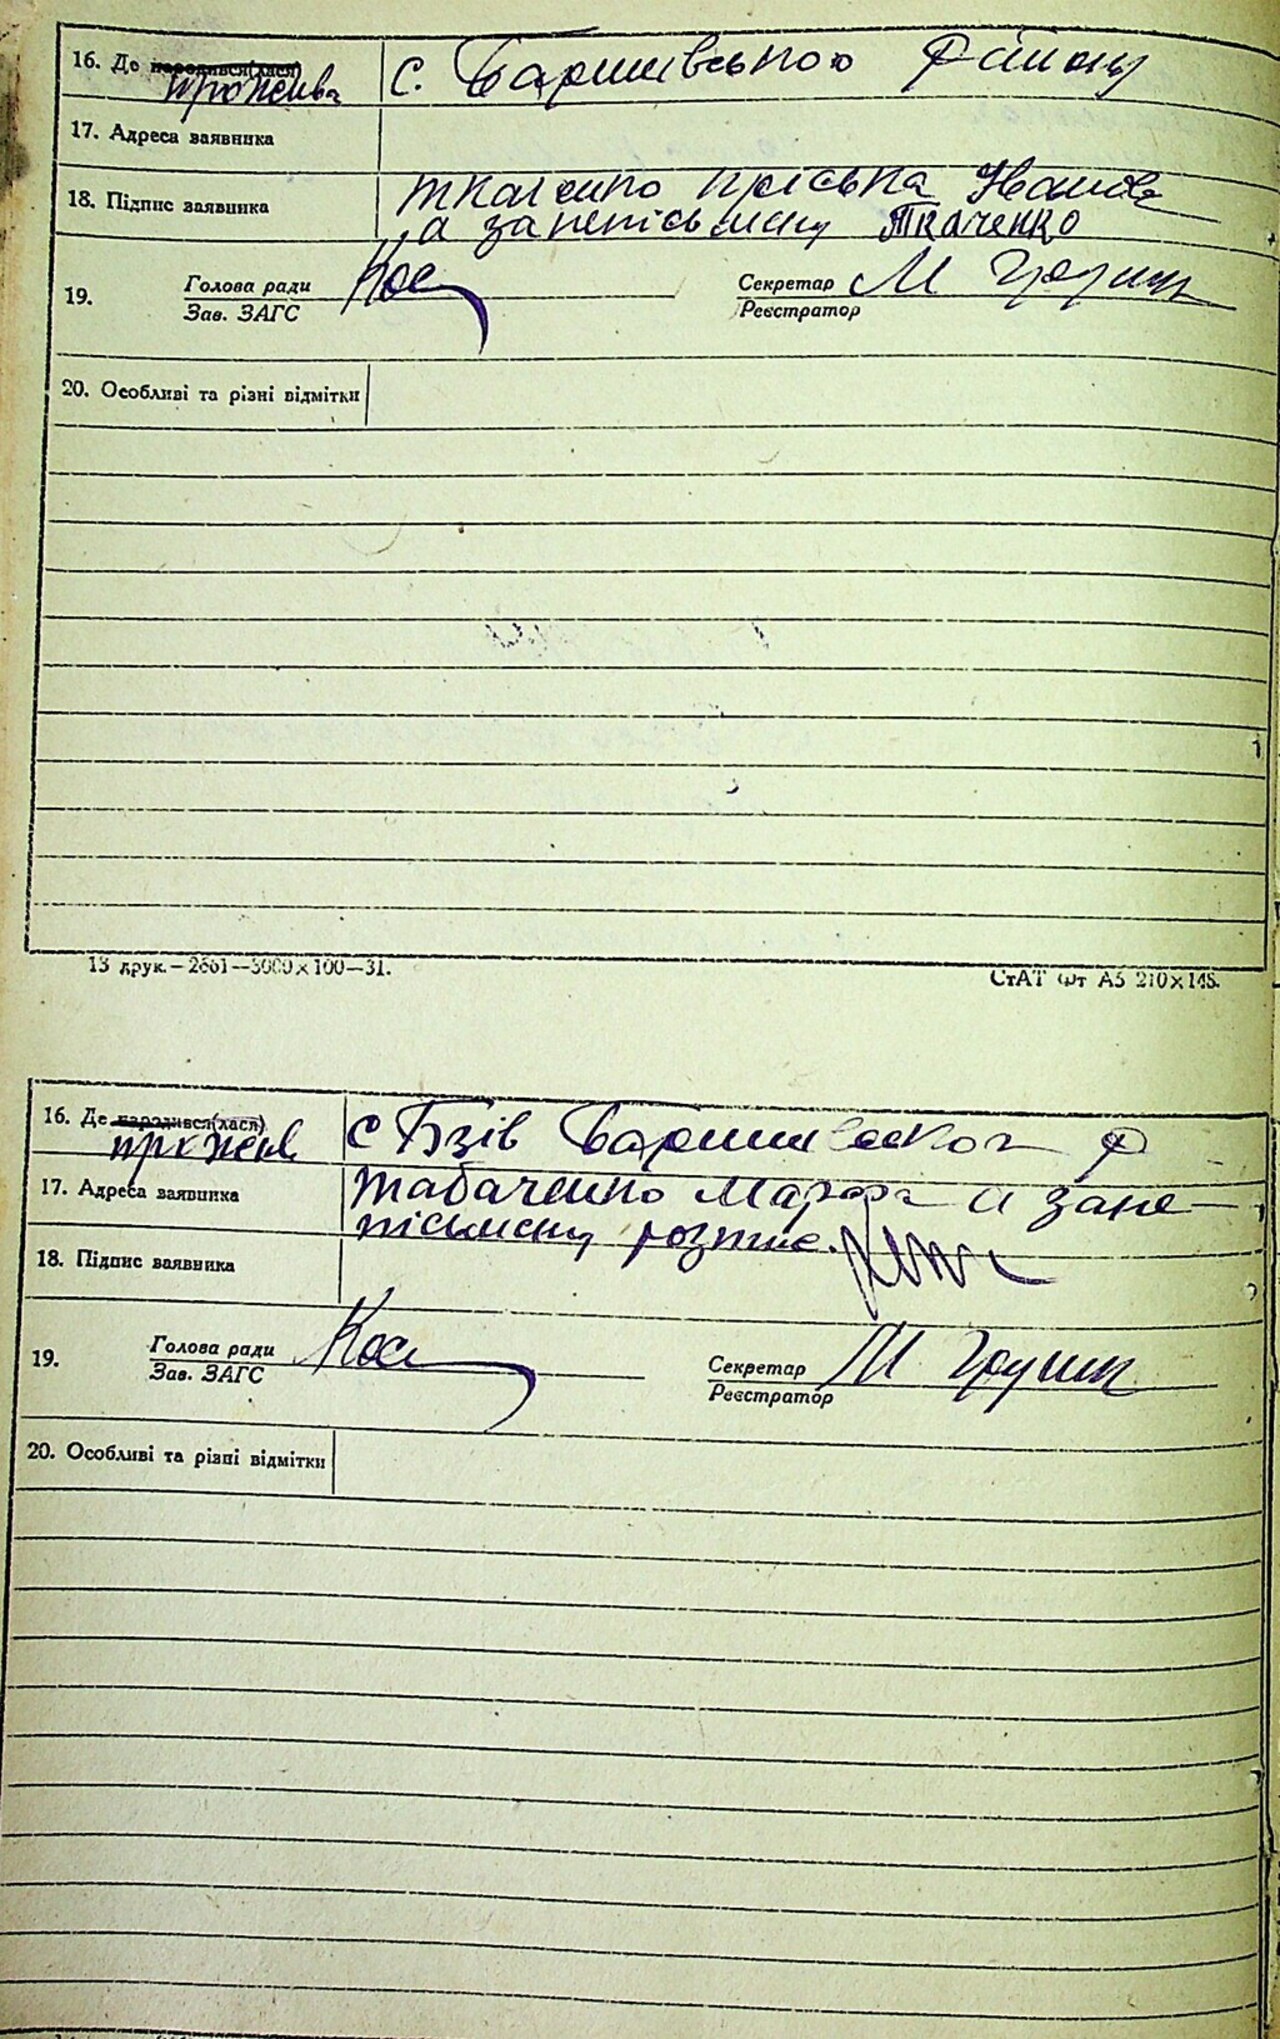 16. Де народився(лася) с. Баришівського Району
прожива
17. Адреса заявника
18. Підпис заявника Ткаченко Пріська Іванова
а занепісьмену Ткаченко
19. Голова ради Секретар М Грущ
Зав. ЗАГС Реєстратор
20. Особливі та різні відмітки
13 друк.—2661—3000×100—31. СтАТ Фт А5 210×148.
16. Де народився(лася) с Бзів Баришевског Р
прожив
17. Адреса заявника Табаченко Марфа а запе-
пісьмену розпис.
18. Підпис заявника
19. Голова ради Секретар М Грущ
Зав. ЗАГС Реєстратор
20. Особливі та різні відмітки